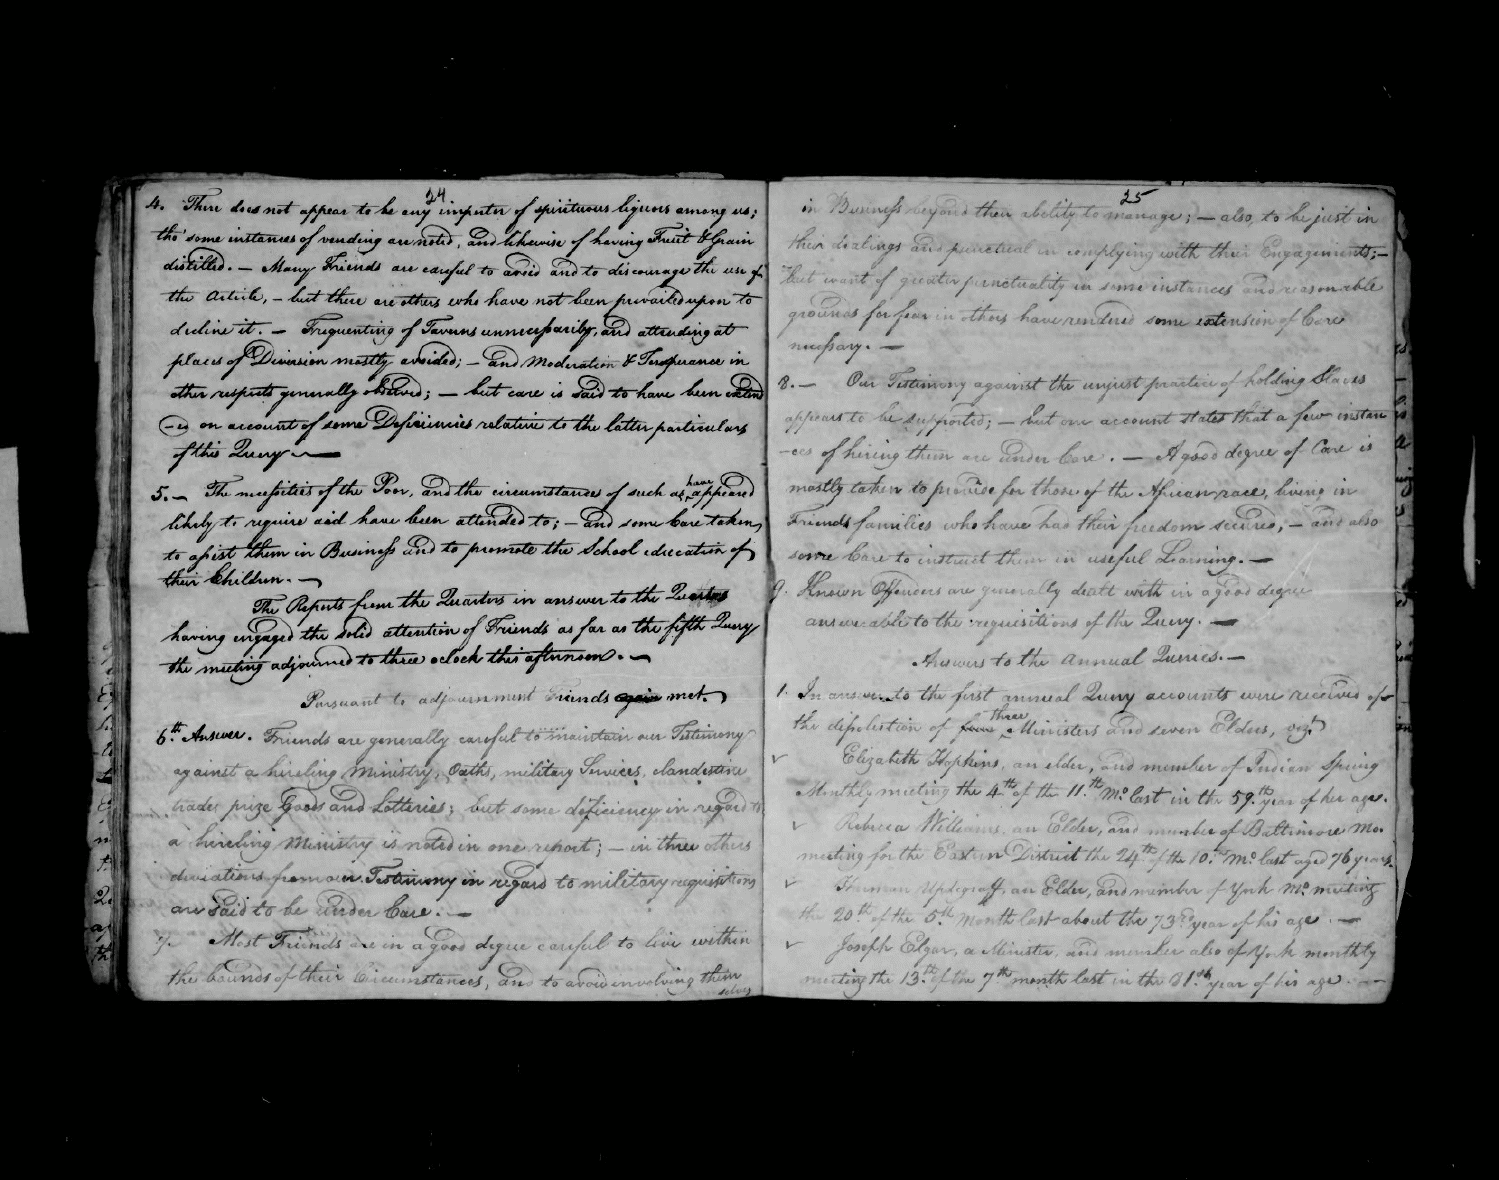 24
4. There does not appear to be any importer of spirituous liquors among us;
tho' some instances of vending are noted, and likewise of having Fruit & Grain
distilled. — Many Friends are careful to avoid and to discourage the use of
the Article, – but there are others who have not been prevailed upon to
decline it. — Frequenting of Taverns unnecessarily, and attending at
places of Diversion mostly avoided; – and Moderation & Temperance in
other respects generally observed; – but care is said to have been extend
-ed on account of some Deficiencies relative to the latter particulars
of this Query. —
5. — The necessities of the Poor, and the circumstances of such as have appeared
likely to require aid have been attended to; – and some Care taken
to assist them in Business and to promote the School education of
their Children. —
The Reports from the Quarters in answer to the
having engaged the solid attention of Friends as far as the fifth Query
the meeting adjourned to three oclock this afternoon. —
Pursuant to adjournment Friends again met.
6th Answer. Friends are generally careful to maintain our Testimony
against a hireling Ministry, Oaths, military Services, clandestine
trade, prize Goods and Lotteries; but some deficiency in regard to
a hireling Ministry is noted in one report; – in three others
deviations from our Testimony in regard to military requisitions
are said to be under Care. —
7. Most Friends are in a good degree careful to live within
the bounds of their Circumstances, and to avoid involving them
selves
25
in Business beyond their ability to manage; – also, to be just in
their dealings and punctual in complying with their Engagements; –
but want of greater punctuality in some instances and reasonable
grounds for fear in others have rendered some extension of Care
necessary. —
8. — Our Testimony against the unjust practice of holding Slaves
appears to be supported; – but one account states that a few instan
-ces of hiring them are under Care. — A good degree of Care is
mostly taken to provide for those of the African race, living in
Friends families who have had their freedom secured; – and also
some Care to instruct them in useful Learning. —
9. Known Offenders are generally dealt with in a good degree
answerable to the requisitions of the Query. —
Answers to the Annual Queries. —
1. In answer to the first annual Query accounts were received of
the dissolution of four three Ministers and seven Elders, vizt
Elizabeth Hopkins, an elder, and member of Indian Spring
Monthly meeting the 4th of the 11th Mo last in the 59th year of her age.
Rebecca Williams, an Elder, and member of Baltimore Mo.
meeting for the Eastern District the 24th of the 10th Mo last aged 76 years.
Herman Updegraff, an Elder, and member of York Mo meeting
the 20th of the 5th Month last about the 73rd year of his age. —
Joseph Elgar, a Minister, and member also of York monthly
meeting the 13th of the 7th month last in the 81st year of his age. —